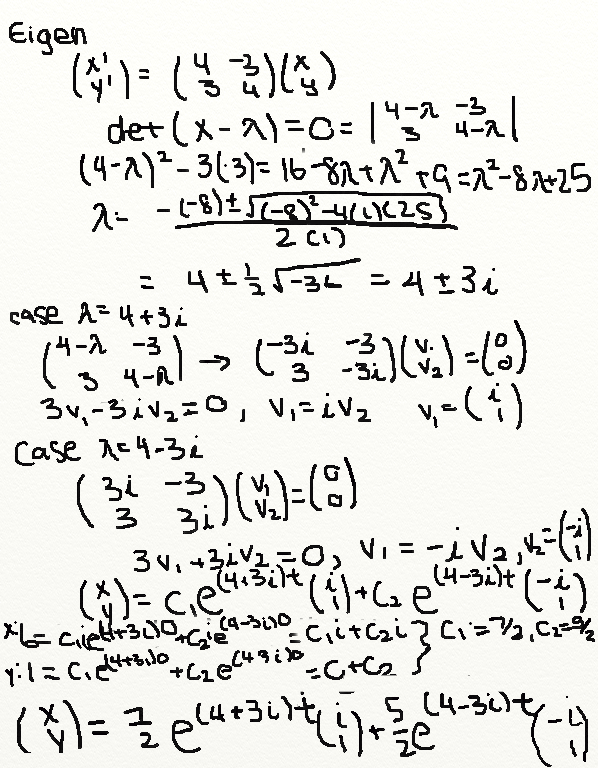 Eigen
(x' y') = (4 -3 3 4)(x y)
det(x-λ)=0=|4-λ -3 3 4-λ|
(4-λ)²-3(-3)=16-8λ+λ²+9=λ²-8λ+25
λ= -(-8)±√((-8)²-4(1)(25)) / 2(1)
= 4±½√-36 = 4±3i
case λ=4+3i
(4-λ -3 3 4-λ) → (-3i -3 3 -3i)(v₁ v₂)=(0 0)
3v₁-3iv₂=0, v₁=iv₂ v₁=(i 1)
Case λ=4-3i
(3i -3 3 3i)(v₁ v₂)=(0 0)
3v₁+3iv₂=0, v₁=-iv₂, v₂=(-i 1)
(x y)=c₁e^(4+3i)t (i 1)+c₂e^(4-3i)t (-i 1)
=c₁i+c₂i} c₁=7/2,
y:1=c₁e^(4+3i)0+c₂e^(4-3i)0=c+c₂
(x y)=7/2 e^(4+3i)t (i 1)+5/2 e^(4-3i)t (-i 1)